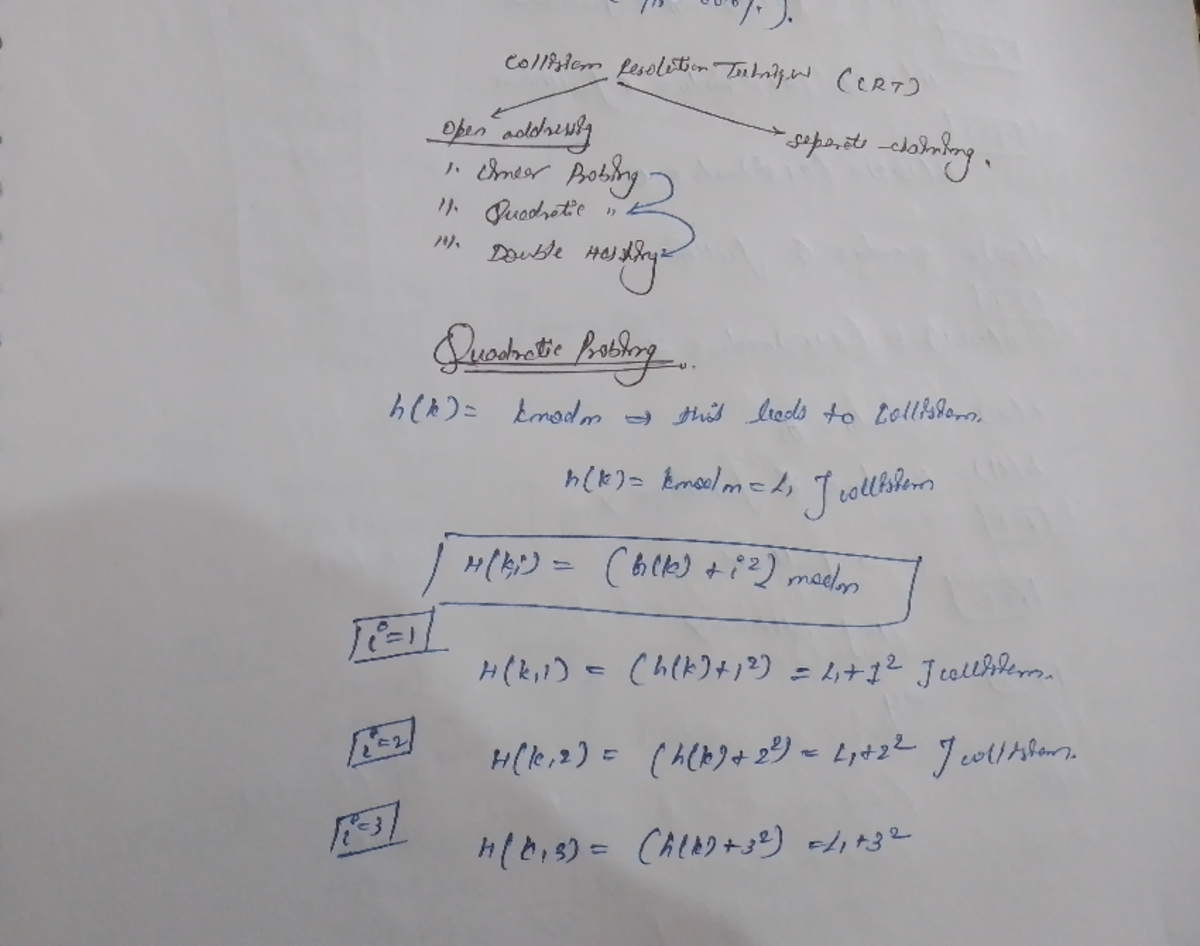 Collision Resolution Technique (CRT)
Open addressing
separate-chaining.
i. Linear Probing
ii. Quadratic "
iii. Double Hashing
Quadratic Probing
h(k) = k mod m ⇒ this leads to collision.
h(k) = k mod m = L₁ } collision
H(k,i) = (h(k) + i²) mod m
i=1
H(k,1) = (h(k)+1²) = L₁+1² } collision.
i=2
H(k,2) = (h(k)+2²) = L₁+2² } collision.
i=3
H(k,3) = (h(k)+3²) = L₁+3²